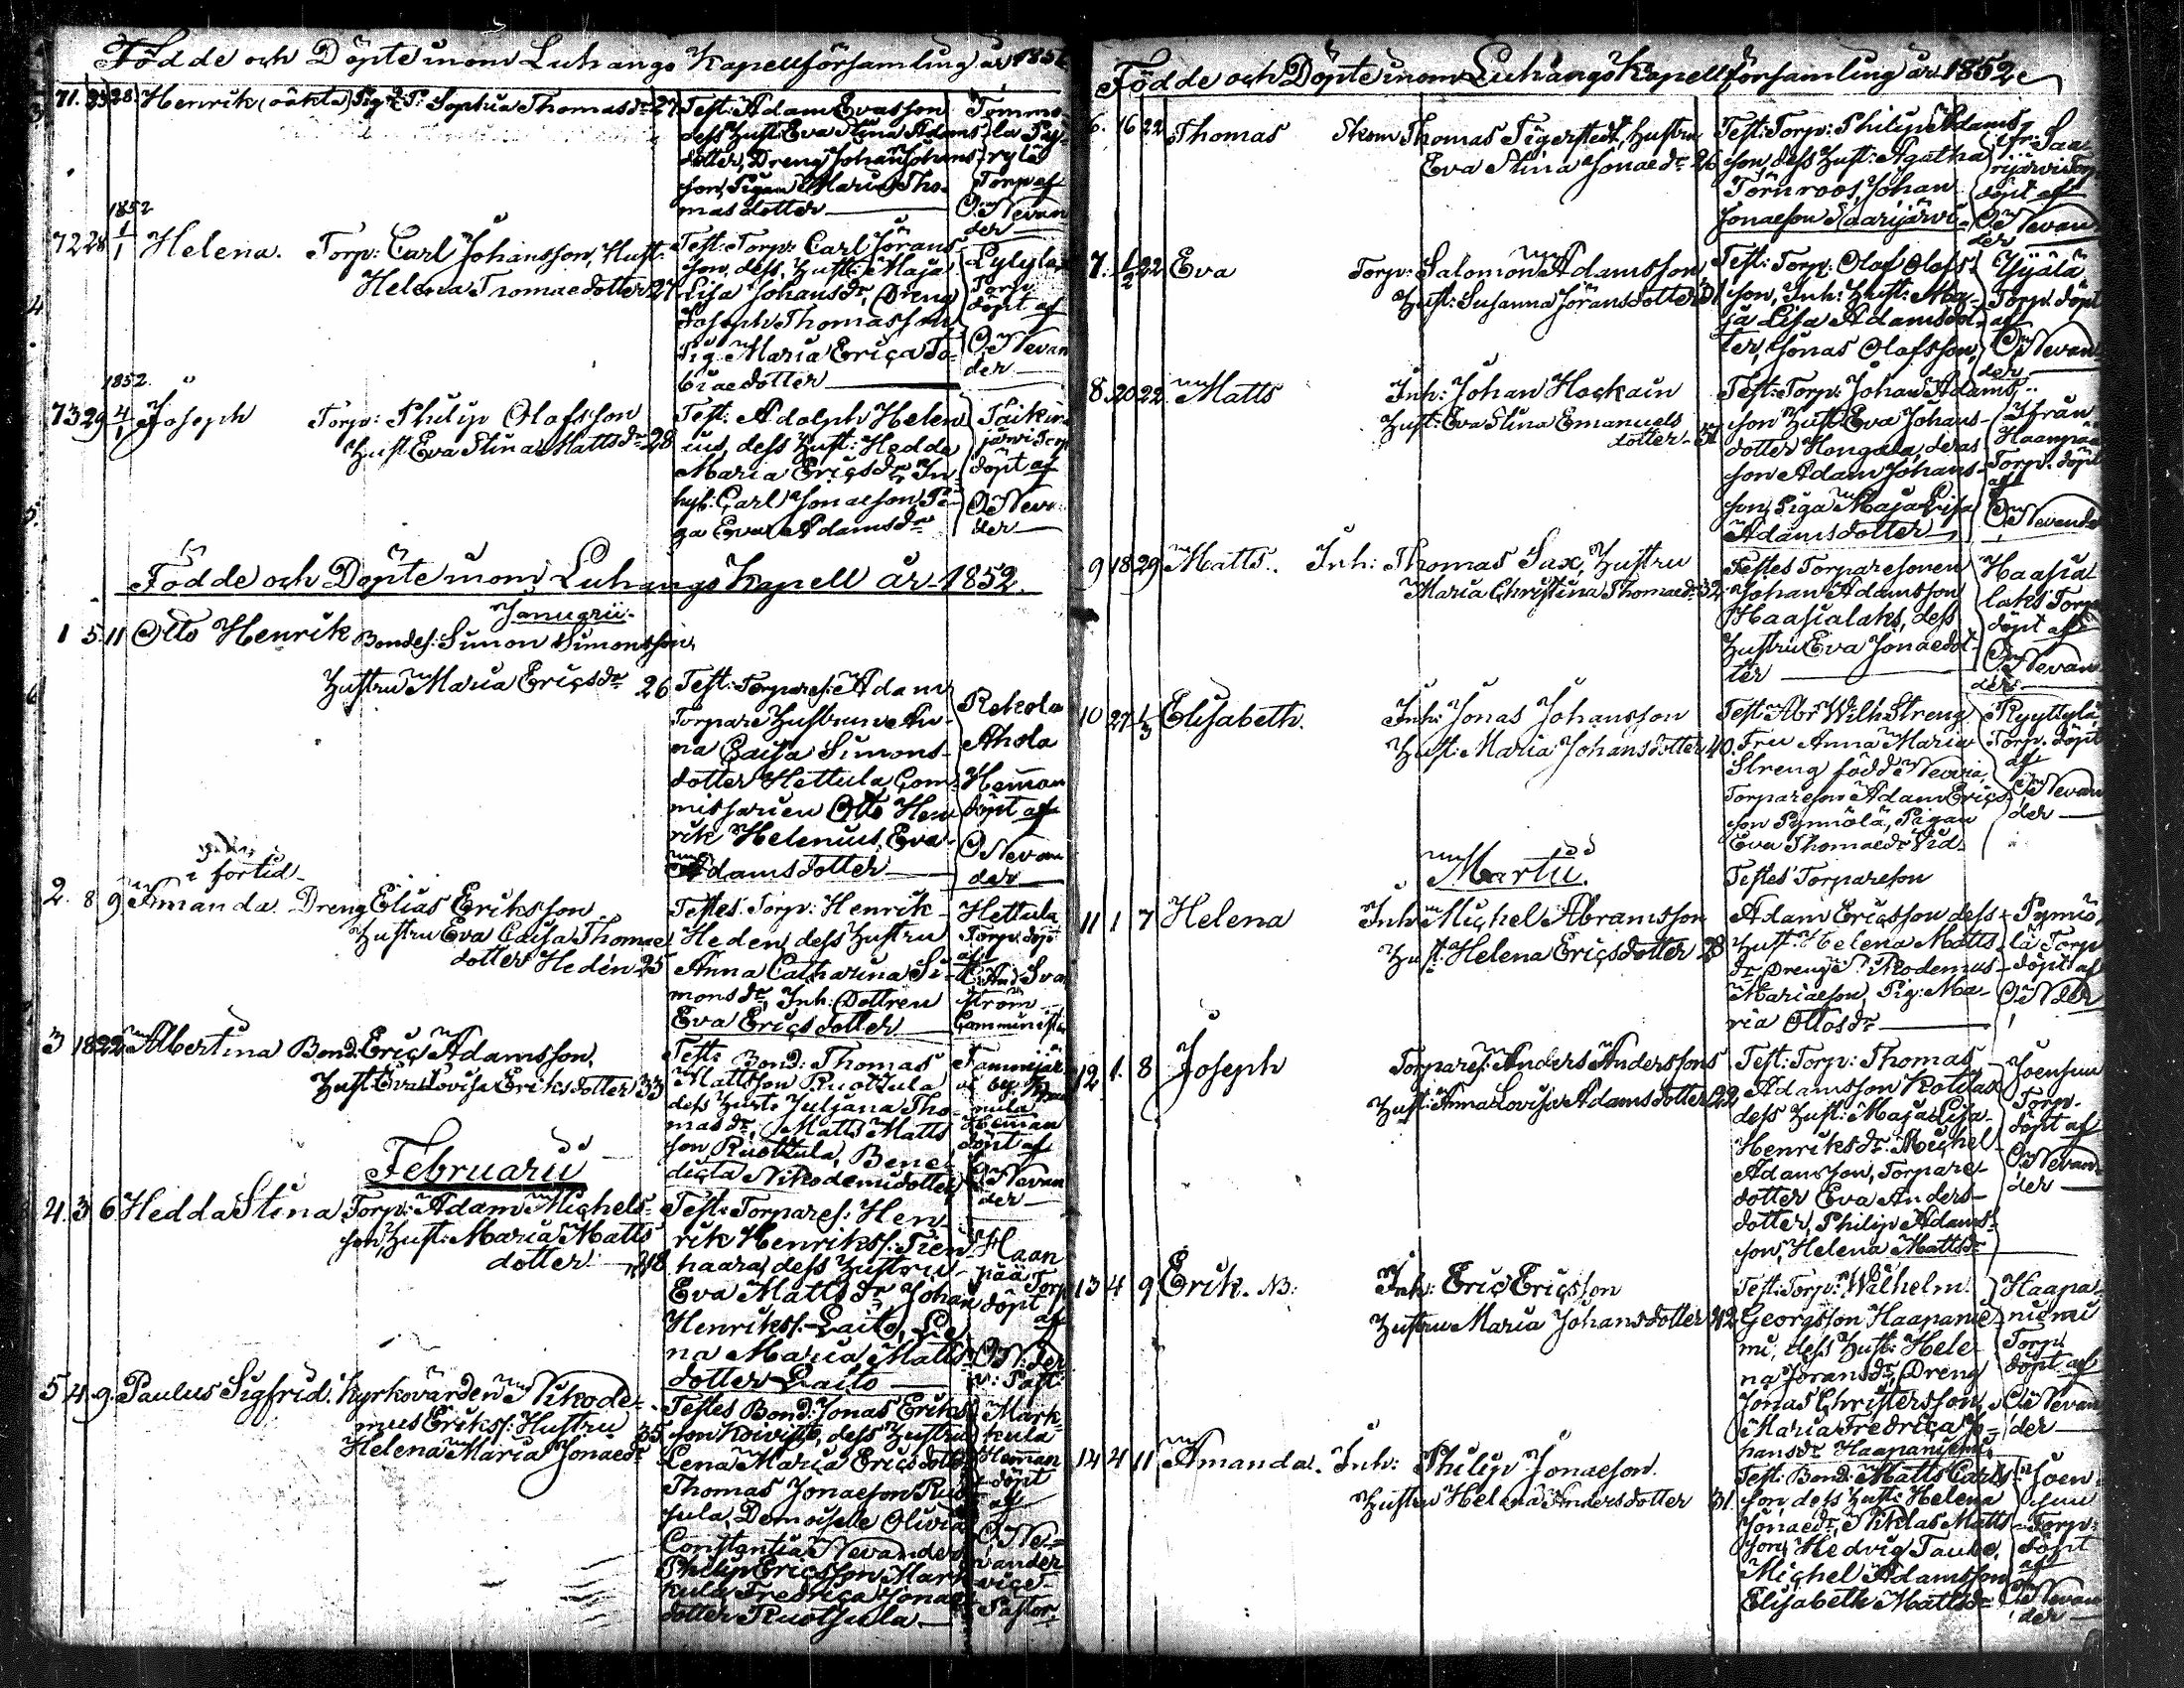 Födde och Döpte inom Luhango Kapellförsamling år 1851
71. 23 28 Henrik (oäkta) Pig: Sophia Thomasdr 27 Test: Adam Evasson
dess Hust: Eva Stina Adams
dotter, Dreng Johan Johans
son, Pigan Maria Tho-
masdotter
Torp af
O. Nevan
der
1852
72 28 1/1 Helena. Torp: Carl Johansson, Hust:
Helena Thomaedotter 27
Test: Torp: Carl Jörans
son, dess Hust: Maja
Lisa Johansdr, Dreng
Joseph Thomasson
Pig. Maria Erica To-
biaedotter
Lylyla
Torp.
döpt af
O. Nevan
der
1852
73 29 4/1 Joseph Torp: Philip Olofsson
Hust. Eva Stina Mattsdr 28
Test: Adolph Helen
ius, dess Hust: Hedda
Maria Ericsdr, In-
hys: Carl Jonaeson, Pi-
ga Eva Adamsdr
järvi Torp
döpt af
O. Nevan
der
Födde och Döpte inom Luhango Kapell år 1852.
Januarii
1 5 11 Otto Henrik Bondes: Simon Simonsson,
Hustru Maria Ericsdr 26
Test: Torpares: Adam
Torpare Hustrun An-
na Caisa Simons-
dotter Hettula, Com-
missarien Otto Hen
rik Helenius, Eva
Adamsdotter
Rekola
Ahola
Heman
döpt af
O. Nevan
der
i förtid
2. 8 9 Amanda. Dreng Elias Eriksson
Hustru Eva Caisa Thomae
dotter Hedén 25
Testes Torp: Henrik
Heden, dess Hustru
Anna Catharina Si-
monsdr, Inh: Dottren
Eva Ericsdotter
Hettula
Torp. döpt
af
ström
Comminist
3 18 22 Albertina Bond: Eric Adamsson,
Hust: Eva Lovisa Eriksdotter 33
Test: Bond: Thomas
Mattsson Ruottula
dess Hust: Juliana Tho-
masdr, Matts Matts
son Ruottula, Bene-
dicta Nikodemidotter
Tammijär
vi by
Heman
döpt af
O. Nevan
der
Februarii
4. 3 6 Hedda Stina Torp: Adam Michels-
son, Hust: Maria Matts
dotter 28
Test: Torpares: Hen-
rik Henrikss: Tien-
haara, dess Hustru
Eva Mattsdr, Johan
Henrikss: Laito, Le
na Maria Matts
dotter Laito
Haan
pää Torp
döpt
af
O. N:der
v: Past:
5 4 9. Paulus Sigfrid. Kyrkovärden Nikode-
mus Erikss: Hustru 35
Helena Maria Jonaedr
Testes Bond: Jonas Eriks
son Koivisto, dess Hustru
Lena Maria Ericsdotter
Thomas Jonaeson Ruot
sula, Demoiselle Olivia
Constantia Nevander
Philip Ericsson Mark
kula, Fredrica Jonae
dotter Ruotsula
Mark-
kula
Heman
döpt
af
O. Ne-
vander
vice
Pastor
Födde och Döpte inom Luhango Kapellförsamling år 1852
6. 16 22 Thomas Skom Thomas Tigerstedt, Hustru
Eva Stina Jonaedr 26
Test: Torp: Philip Adams
son, dess Hust: Agatha
Törnroos, Johan
Jonaeson Saarijärvi
ifr. Saa-
rijärvi Torp
döpt af
O. Nevan
der
7. 1/2 22 Eva Torp: Salomon Adamsson
Hust: Susanna Jöransdotter 31
Test: Torp: Olof Olofs
son, Inh: Hust: Ma-
ja Lisa Adamsdot-
ter, Jonas Olofsson,
Torp. döpt
af
O. Nevan
der
8. 20 22. Matts Inh: Johan Hockain
Hust: Eva Stina Emanuels
dotter
Test: Torp: Johan Adams
son Hust. Eva Johans-
dotter Kongala, deras
son Adam Johans-
son, Piga Maja Lisa
Adamsdotter
Ifrån
Haanpää
Torp. döpt
af
O. Nevander
9 18 29 Matts. Inh: Thomas Sax, Hustru
Maria Christina Thomaedr 32
Testes Torparesonen
Johan Adamsson
Haasialaks, dess
Hustru Eva Jonaedot-
ter
Haasia
laks Torp
döpt af
O. Nevan
der
10 27 1/3 Elisabeth. Inh: Jonas Johansson
Hust: Maria Johansdotter 40.
Test: Abr Wilh Streng
Fru Anna Maria
Streng född
Torpareson Adam Erics
son Pynnölä, Pigan
Eva Thomaedr
Torp. döpt
af
O. Nevan
der
Martii.
11 1 7 Helena Inh: Michel Abramsson
Hust: Helena Ericsdotter 28
Testes Torpareson
Adam Ericsson dess
Hust: Helena Matts
dr, Dreng Nikodemus
Mariaeson, Pig: Ma-
ria Ottosdr
Pynnö
lä Torp
döpt af
O. N der
12 1. 8 Joseph Torpares: Anders Anderssons
Hust: Anna Lovisa Adamsdotter 22
Test: Torp: Thomas
Adamsson
dess Hust: Maja Lisa
Henriksdr, Michel
Adamsson, Torpare-
dotter Eva Anders-
dotter, Philip Adams-
son, Helena Mattsdr
Joensuu
Torp.
döpt af
O. Nevan
der
13 4 9 Erik. NB: Inh: Eric Ericsson
Hustru Maria Johansdotter 42
Test: Torp: Wilhelm
Georgsson Haapanie
mi, dess Hust: Hele-
na Jöransdr, Dreng
Jonas Christersson,
Maria Fredrica Jo-
hansdr Haapaniemi
Haapa-
niemi
Torp.
döpt af
O. Nevan
der
14 4 11 Amanda. Inh: Philip Jonaeson.
Hustru Helena Andersdotter 31.
Test: Bond: Matts Carls-
son, dess Hust: Helena
Jonaedr, Niklas Matts
son, Hedvig Taube,
Michel Adamsson
Elisabeth Mattsdr
Joen
suu
Torp.
döpt
af
O. Nevan
der